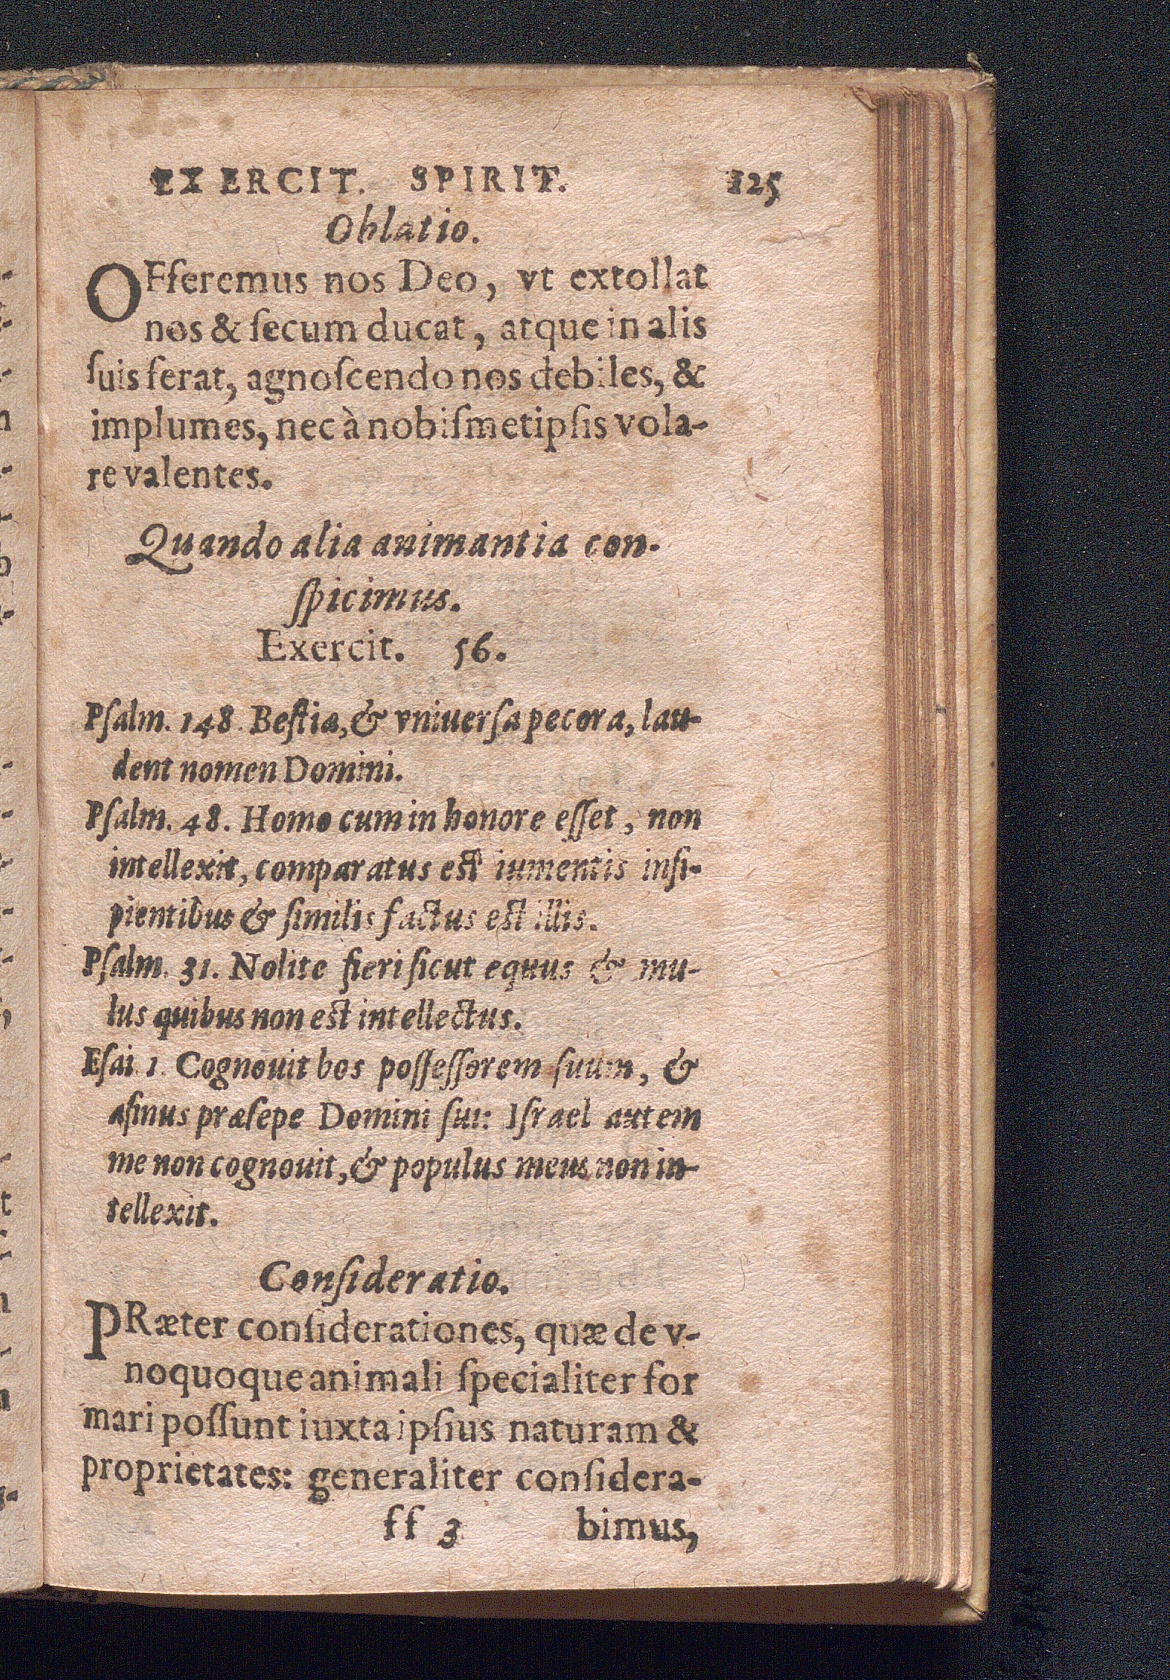 EXERCIT. SPIRIT. 125
Oblatio.
OFferemus nos Deo, vt extollat
nos & ſecum ducat, atque in alis
ſuis ferat, agnoſcendo nos debiles, &
implumes, nec à nobiſmetipſis vola-
re valentes.
Quando alia animantia con-
ſpicimus.
Exercit. 56.
Pſalm. 148. Beſtia, & vniuerſa pecora, lau-
dent nomen Domini.
Pſalm. 48. Homo cum in honore eſſet, non
intellexit, comparatus eſt iumentis inſi-
pientibus & ſimilis factus eſt illis.
Pſalm. 31. Nolite fieri ſicut equus & mu-
lus quibus non eſt intellectus.
Eſai. 1. Cognouit bos poſſeſſorem ſuum, &
aſinus præſepe Domini ſui: Iſrael autem
me non cognouit, & populus meus non in-
tellexit.
Conſideratio.
PRæter conſiderationes, quæ de v-
noquoque animali ſpecialiter for
mari poſſunt iuxta ipſius naturam &
proprietates: generaliter conſidera-
ff 3 bimus,